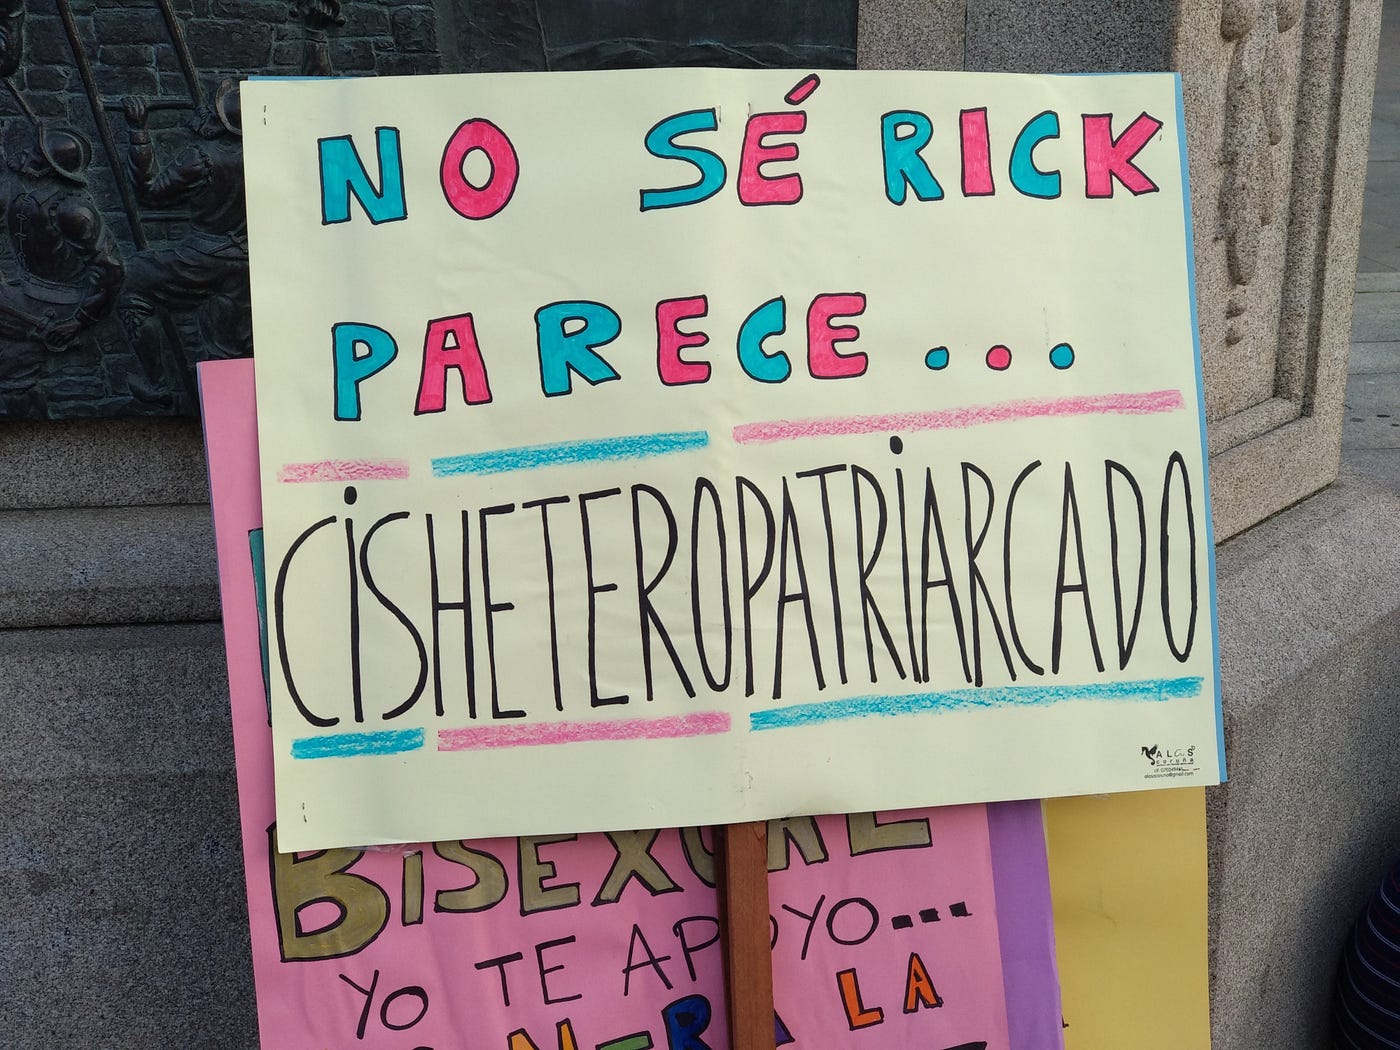 NO SÉ RICK
PARECE...
CISHETEROPATRIARCADO
ALAS
coruña
BISEXUAL
YO TE APOYO...
LA